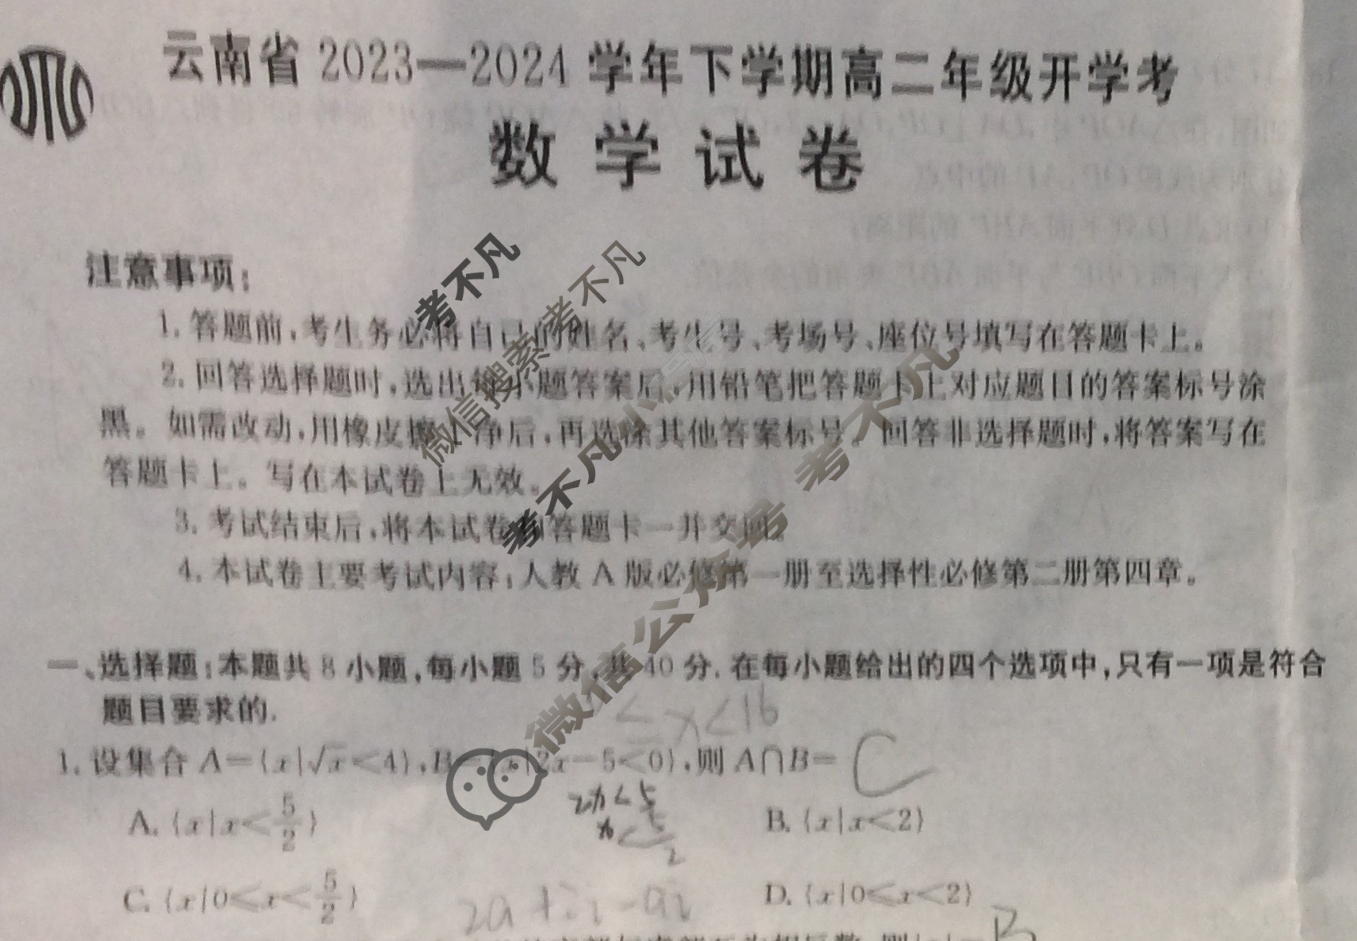 云南省 2023—2024 学年下学期高二年级开学考
数学试卷
注意事项：
1. 答题前，考生务必将自己的姓名、考生号、考场号、座位号填写在答题卡上。
2. 回答选择题时，选出每小题答案后，用铅笔把答题卡上对应题目的答案标号涂
黑。如需改动，用橡皮擦干净后，再选涂其他答案标号。回答非选择题时，将答案写在
答题卡上。写在本试卷上无效。
3. 考试结束后，将本试卷和答题卡一并交回。
4. 本试卷主要考试内容：人教 A 版必修第一册至选择性必修第二册第四章。
一、选择题：本题共 8 小题，每小题 5 分，共 40 分. 在每小题给出的四个选项中，只有一项是符合
题目要求的.
≤x<16
1. 设集合 A={x|√x<4}，B={x|2x-5<0}，则 A∩B= C
2x<5
x<5/2
A. {x|x<5/2}
B. {x|x<2}
C. {x|0≤x<5/2}
D. {x|0≤x<2}
2a+2i-ai
B
考不凡
微信搜索 考不凡
考不凡
微信公众号 考不凡